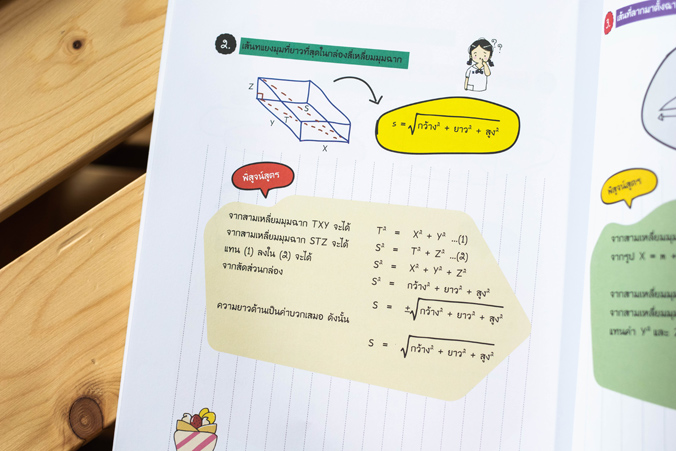 2. เส้นทแยงมุมที่ยาวที่สุดในกล่องสี่เหลี่ยมมุมฉาก
? ?
Z
S
T
Y
X
s = √กว้าง² + ยาว² + สูง²
พิสูจน์สูตร
จากสามเหลี่ยมมุมฉาก TXY จะได้ T² = X² + Y² ...(1)
จากสามเหลี่ยมมุมฉาก STZ จะได้ S² = T² + Z² ...(2)
แทน (1) ลงใน (2) จะได้ S² = X² + Y² + Z²
จากสัดส่วนกล่อง S² = กว้าง² + ยาว² + สูง²
S = ±√กว้าง² + ยาว² + สูง²
ความยาวด้านเป็นค่าบวกเสมอ ดังนั้น
S = √กว้าง² + ยาว² + สูง²
3. เส้นที่ลากมาตั้งฉา
พิสูจน์สูตร
จากสามเหลี่ยมมุม
จากรูป X = m +
จากสามเหลี่ยมมุม
จากสามเหลี่ยมมุม
แทนค่า Y² และ